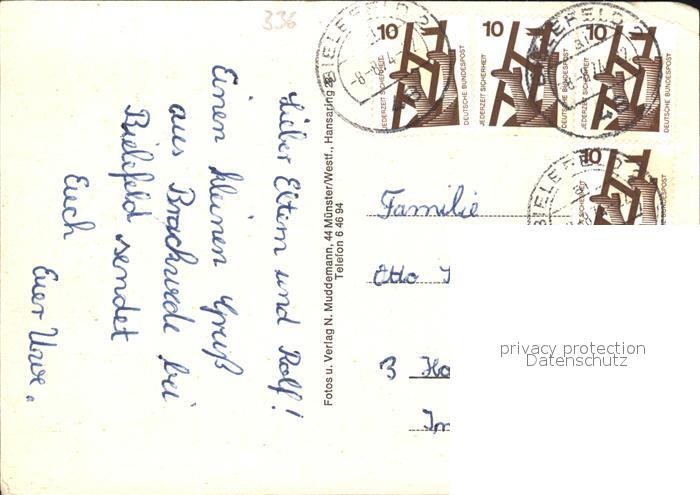 336
Lieber Eltern und Rolf!
Einen kleinen Gruß
aus Brackwede bei
Bielefeld sendet
Euch
Euer Uwe.
Fotos u. Verlag N. Muddemann, 44 Münster/Westf., Hansaring 28
Telefon 6 46 94
10
JEDERZEIT SICHERHEIT
DEUTSCHE BUNDESPOST
10
JEDERZEIT SICHERHEIT
DEUTSCHE BUNDESPOST
10
JEDERZEIT SICHERHEIT
DEUTSCHE BUNDESPOST
10
BIELEFELD 2
BIELEFELD 2
BIELEFELD
Familie
Otto
3 Ha
Im
privacy protection
Datenschutz